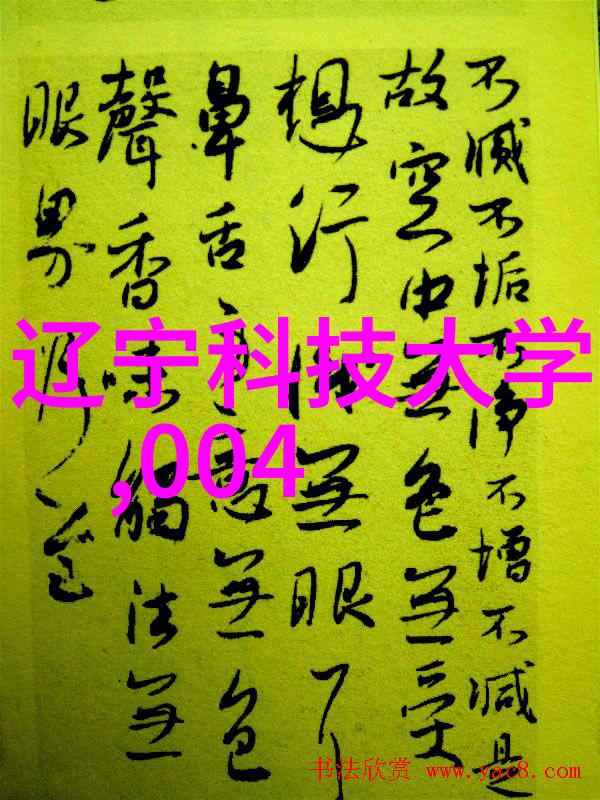 不滅不垢不净不增不减是
故空中無色無受
想行識無眼耳
鼻舌身意無色
聲香味觸法無
眼界乃至
辽宁科技大学
,004
书法欣赏 www.yac8.com